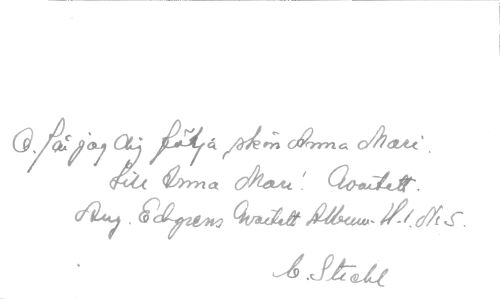 O. får jag dig följa skön Anna Mari.
Lill Anna Mari! Qvartett.
Aug. Edgrens Qvartett Album. H. 1. N. 5.
C. Stiehl